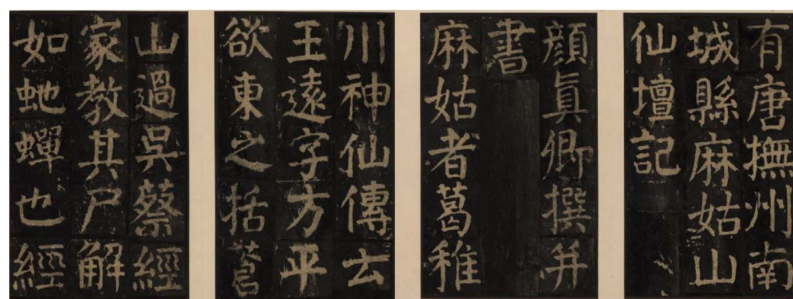 有唐撫州南
城縣麻姑山
仙壇記
顏真卿撰并
書
麻姑者葛稚
川神仙傳云
王遠字方平
欲東之括蒼
山過吳蔡經
家教其尸解
如虵蟬也經